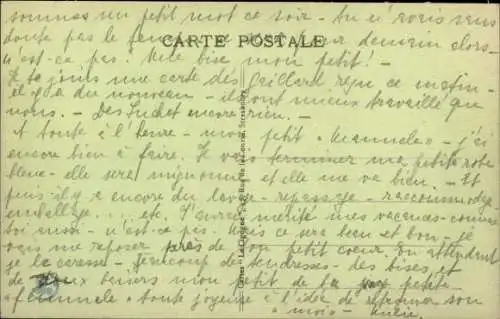 sommes un petit mot ce soir - tu n'auras sans
doute pas le pour demain alors -
n'est-ce pas! Mille bises mon petit! -
CARTE POSTALE
Je te joins une carte des Gaillard reçu ce matin -
il y a du nouveau - ils ont mieux travaillé que
nous. - Des Suchet encore rien. -
et toute à l'heure - mon petit "Mannele" - j'ai
encore bien à faire. Je vais terminer ma petite robe
bleue - elle sera mignonne et elle me va bien. - Et
puis il y a encore du lavage - repassage - raccommodage
emballage ... etc. J'aurai mérité mes vacances - comme
toi aussi - n'est-ce pas - Mais ce sera beau et bon - je
vais me reposer près de ton petit coeur. En attendant
je le caresse - beaucoup de tendresses - des bises et
de doux baisers mon petit de ta petite
femmele toute joyeuse à l'idée de retrouver son
"mois"